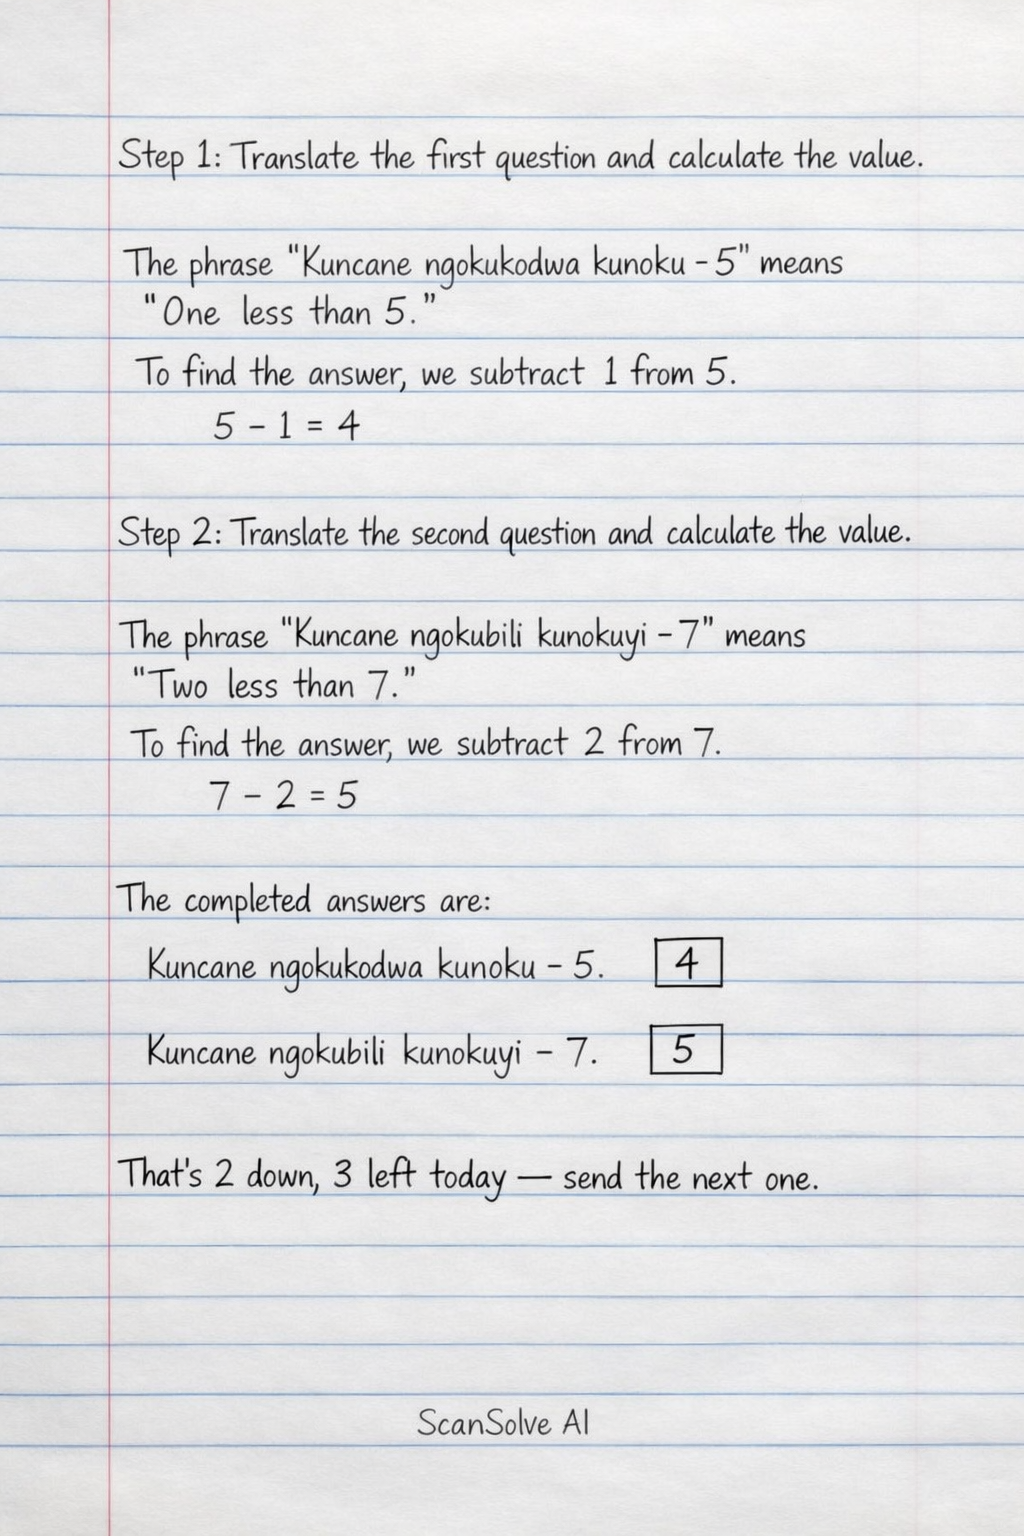 Step 1: Translate the first question and calculate the value.
The phrase "Kuncane ngokukodwa kunoku - 5" means
"One less than 5."
To find the answer, we subtract 1 from 5.
5 - 1 = 4
Step 2: Translate the second question and calculate the value.
The phrase "Kuncane ngokubili kunokuyi - 7" means
"Two less than 7."
To find the answer, we subtract 2 from 7.
7 - 2 = 5
The completed answers are:
Kuncane ngokukodwa kunoku - 5. 4
Kuncane ngokubili kunokuyi - 7. 5
That's 2 down, 3 left today — send the next one.
ScanSolve AI